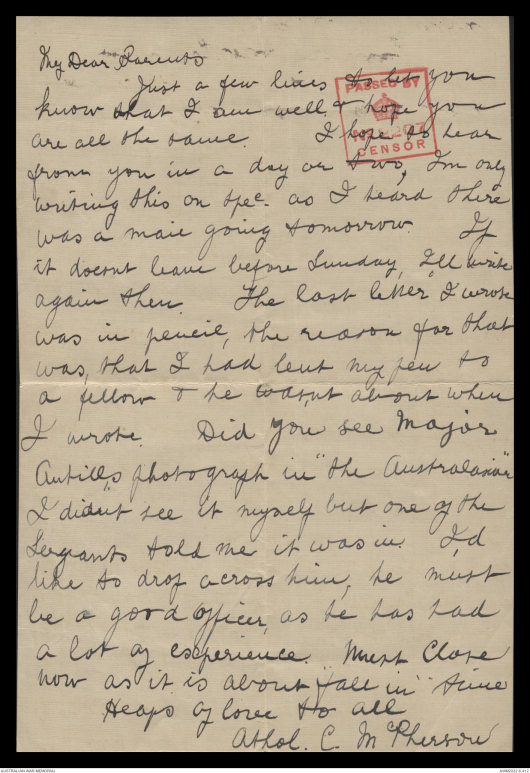 My Dear Parents
Just a few lines to let you
know that I am well & hope you
are all the same. I hope to hear
from you in a day or two, I'm only
writing this on spec. as I heard there
was a mail going tomorrow. If
it doesnt leave before Sunday, I'll write
again then. The last letter I wrote
was in pencil, the reason for that
was, that I had lent my pen to
a fellow & he wasnt about when
I wrote. Did you see Major
Antill's photograph in "the Australasian"
I didn't see it myself but one of the
Sergeants told me it was in. I'd
like to drop across him, he must
be a good officer, as he has had
a lot of experience. Must Close
now as it is about "fall in" time
Heaps of love to all
Athol. C. McPherson
PASSED BY
CENSOR
AUSTRALIAN WAR MEMORIAL